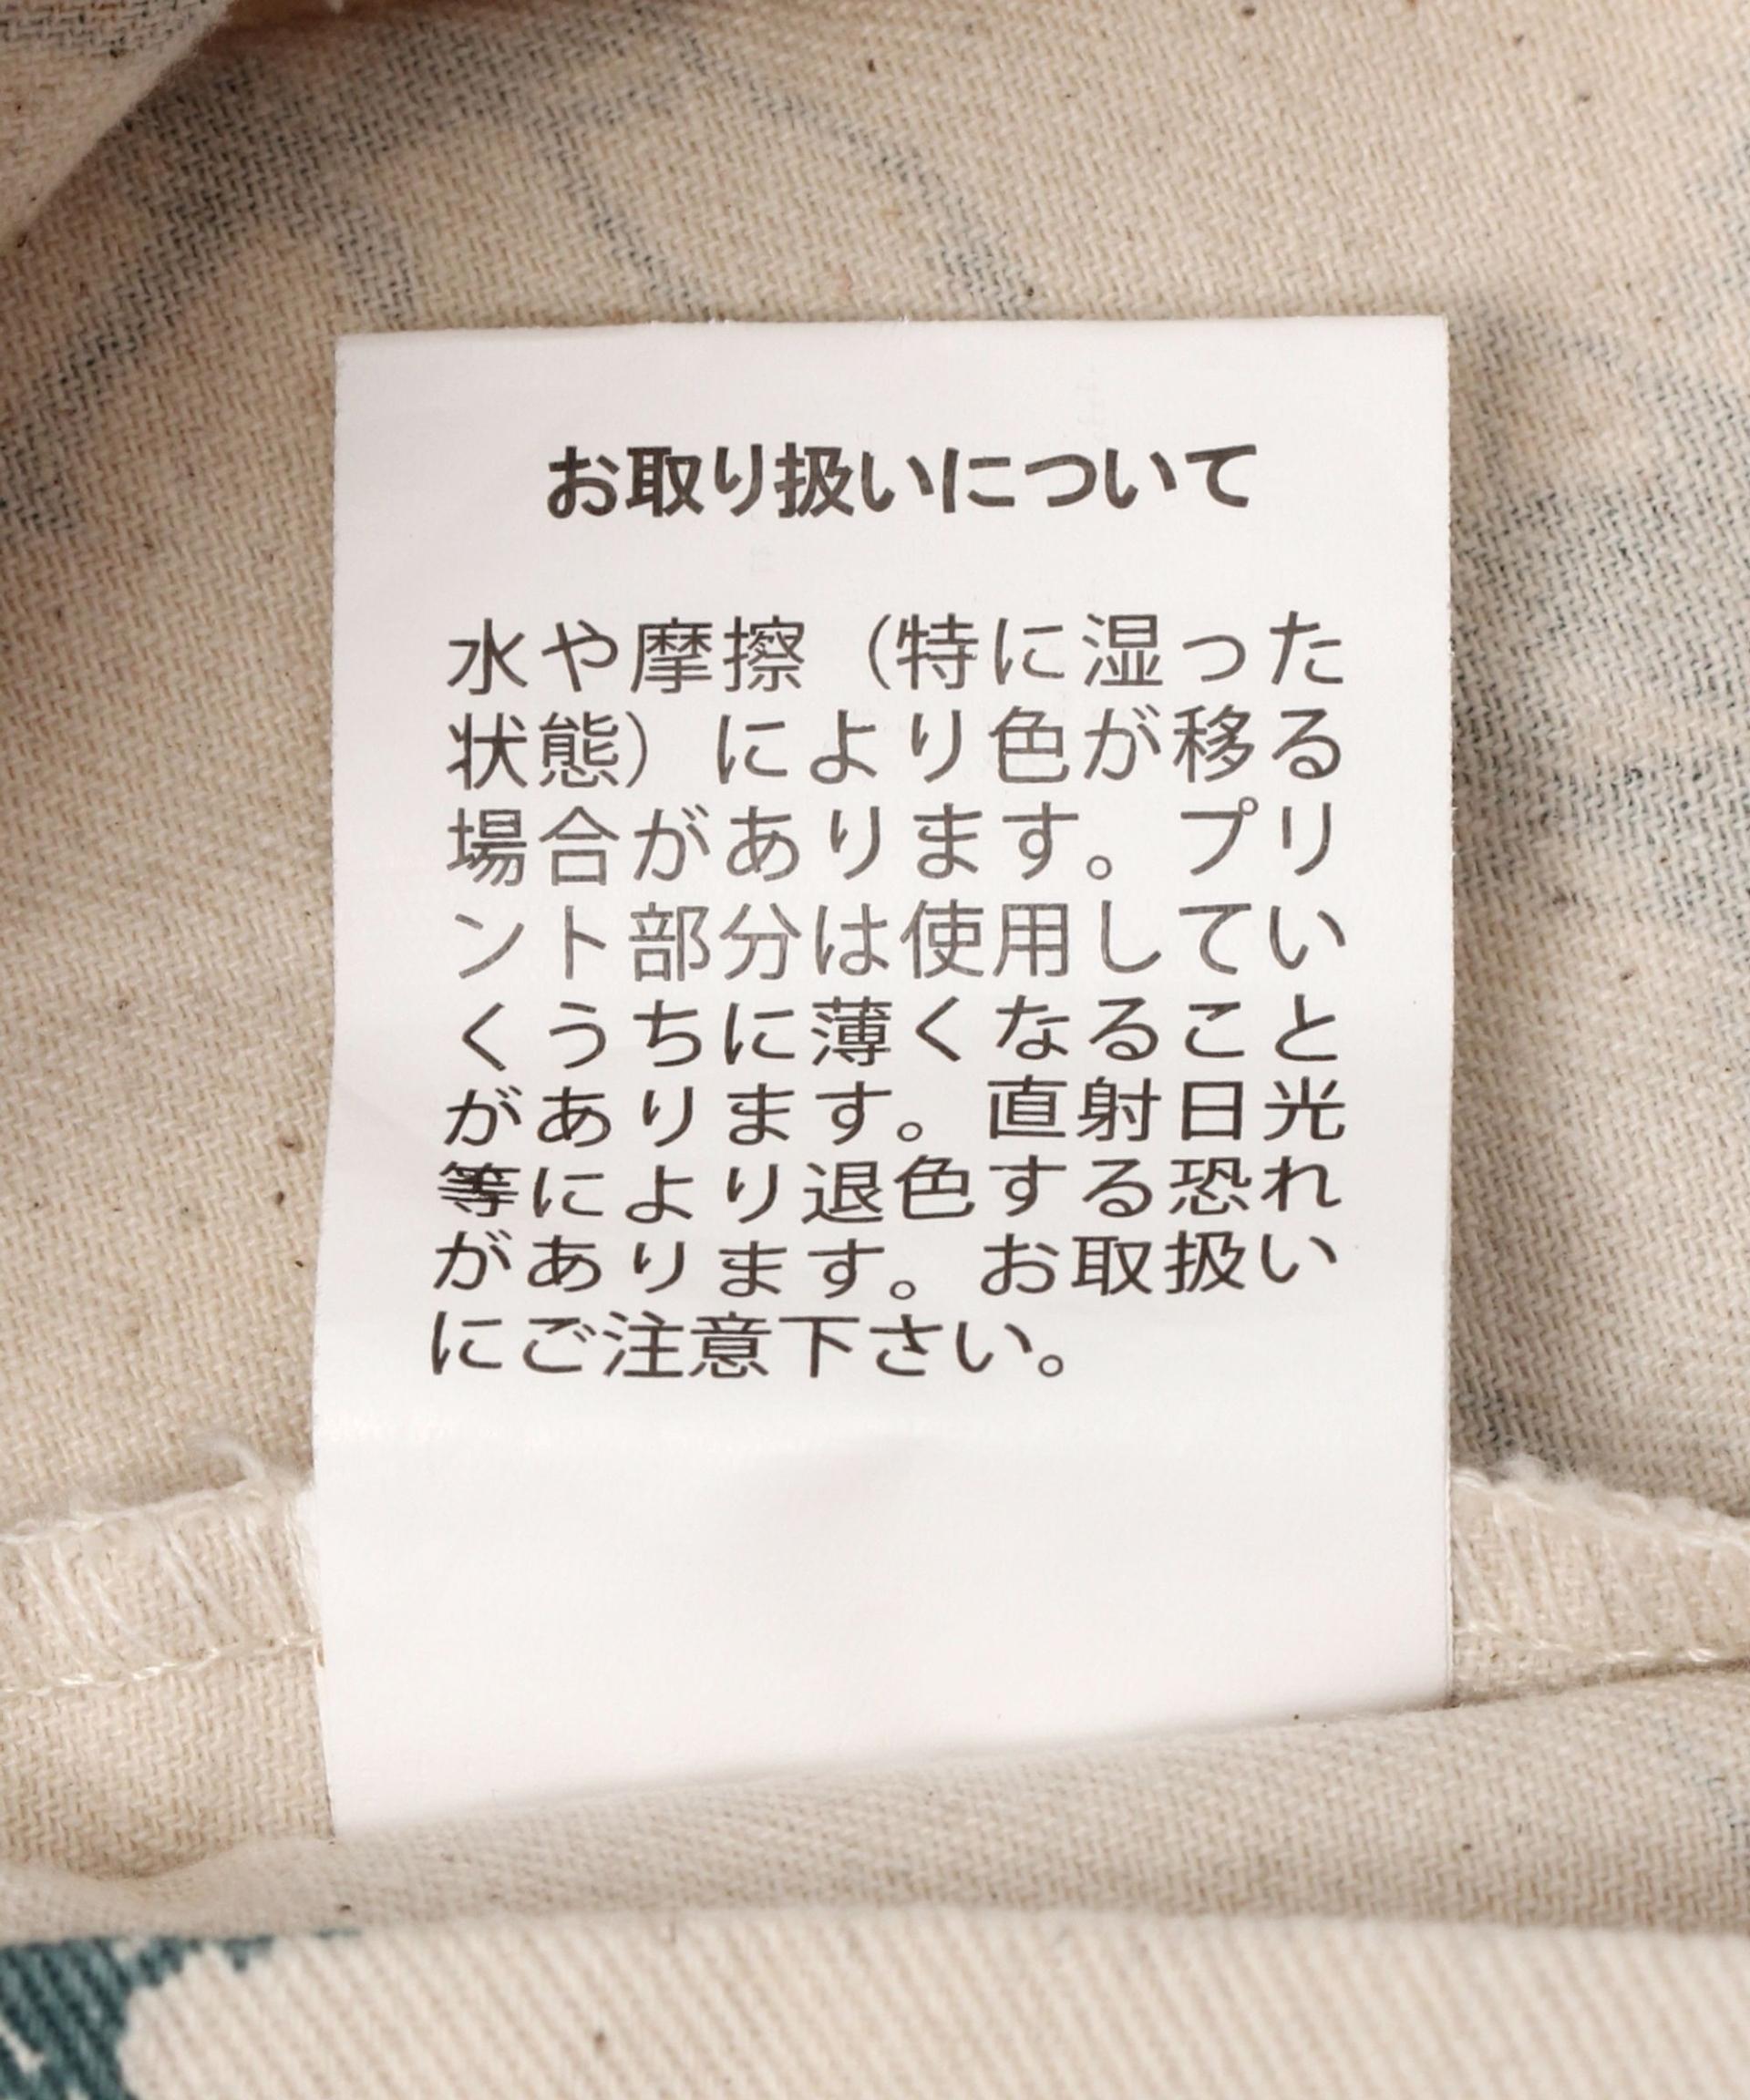 お取り扱いについて
水や摩擦（特に湿った
状態）により色が移る
場合があります。プリ
ント部分は使用してい
くうちに薄くなること
があります。直射日光
等により退色する恐れ
があります。お取扱い
にご注意下さい。